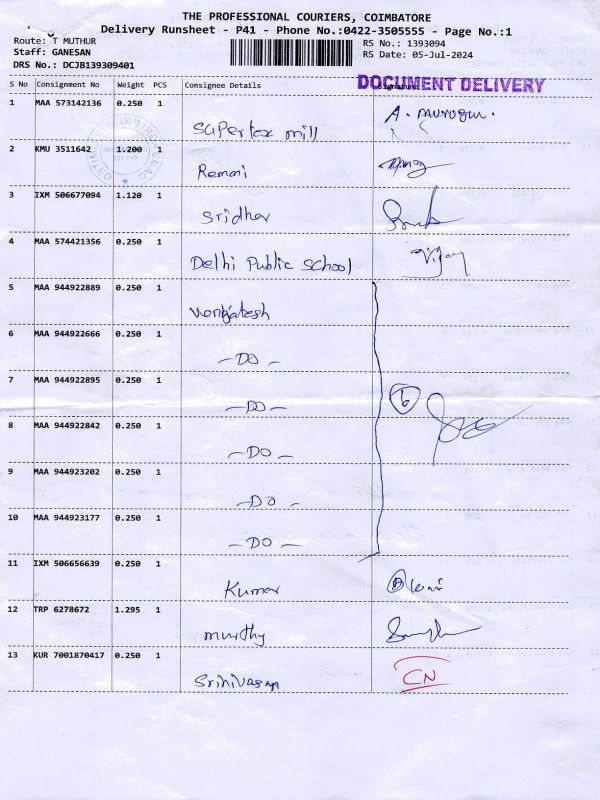 THE PROFESSIONAL COURIERS, COIMBATORE
Delivery Runsheet - P41 - Phone No.:0422-3505555 - Page No.:1
Route: T MUTHUR
Staff: GANESAN
DRS No.: DCJB139309401
RS No.: 1393094
RS Date: 05-Jul-2024
DOCUMENT DELIVERY
S No Consignment No Weight PCS Consignee Details Signature
1 MAA 573142136 0.250 1 Supertex mill A. murugan.
2 KMU 3511642 1.200 1 Remani
3 IXM 506677094 1.120 1 Sridher
4 MAA 574421356 0.250 1 Delhi Public School Vijay
5 MAA 944922889 0.250 1 Venkatesh
6 MAA 944922666 0.250 1 -DO-
7 MAA 944922895 0.250 1 -DO-
6
8 MAA 944922842 0.250 1 -DO-
9 MAA 944923202 0.250 1 -DO-
10 MAA 944923177 0.250 1 -DO-
11 IXM 506656639 0.250 1 Kumar
12 TRP 6278672 1.295 1 murthy
13 KUR 7001870417 0.250 1 Srinivasan CN